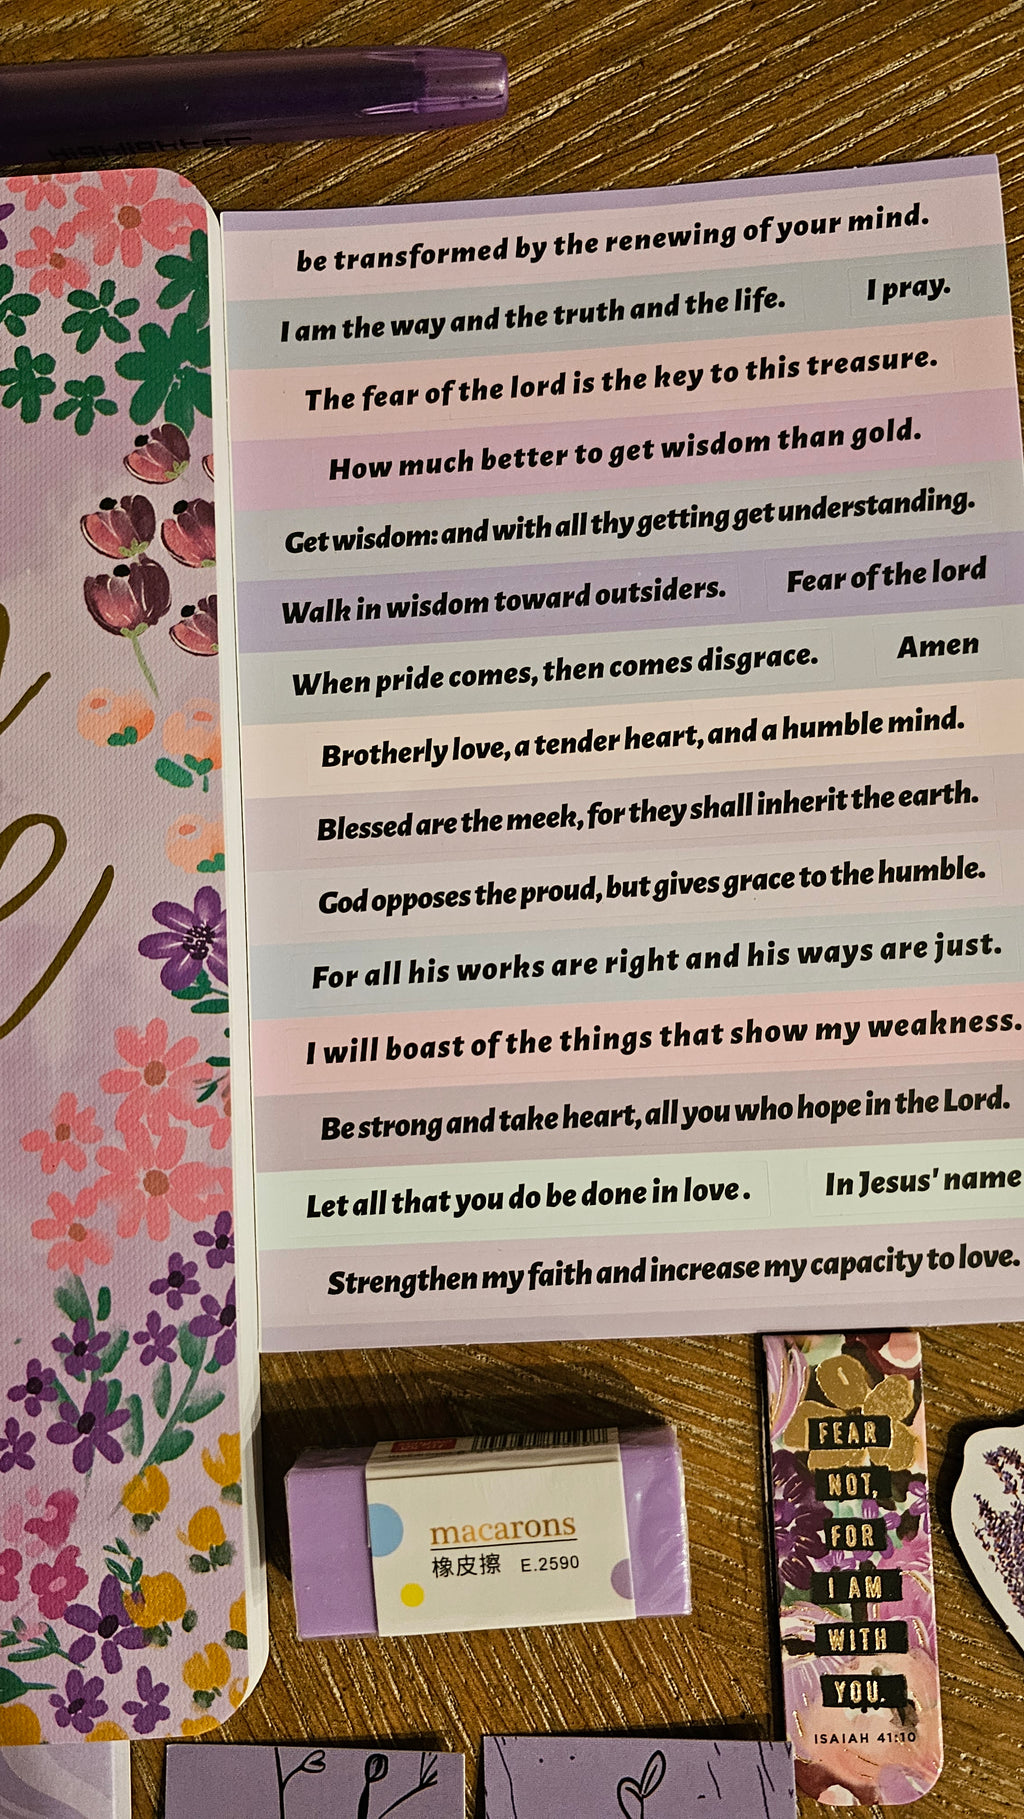 HIGHLIGHTER
be transformed by the renewing of your mind.
I am the way and the truth and the life. I pray.
The fear of the lord is the key to this treasure.
How much better to get wisdom than gold.
Get wisdom: and with all thy getting get understanding.
Walk in wisdom toward outsiders. Fear of the lord
When pride comes, then comes disgrace. Amen
Brotherly love, a tender heart, and a humble mind.
Blessed are the meek, for they shall inherit the earth.
God opposes the proud, but gives grace to the humble.
For all his works are right and his ways are just.
I will boast of the things that show my weakness.
Be strong and take heart, all you who hope in the Lord.
Let all that you do be done in love. In Jesus' name
Strengthen my faith and increase my capacity to love.
macarons
橡皮擦 E.2590
FEAR
NOT,
FOR
I AM
WITH
YOU.
ISAIAH 41:10